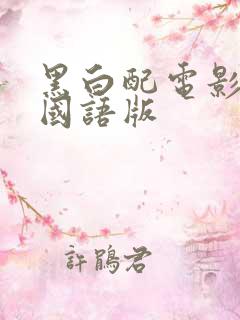 黑白配電影
國語版
許鵑君